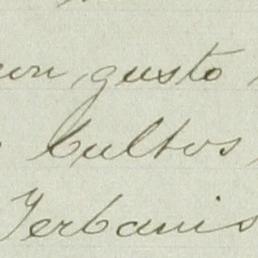 con gusto
Cultos
Yerbanis